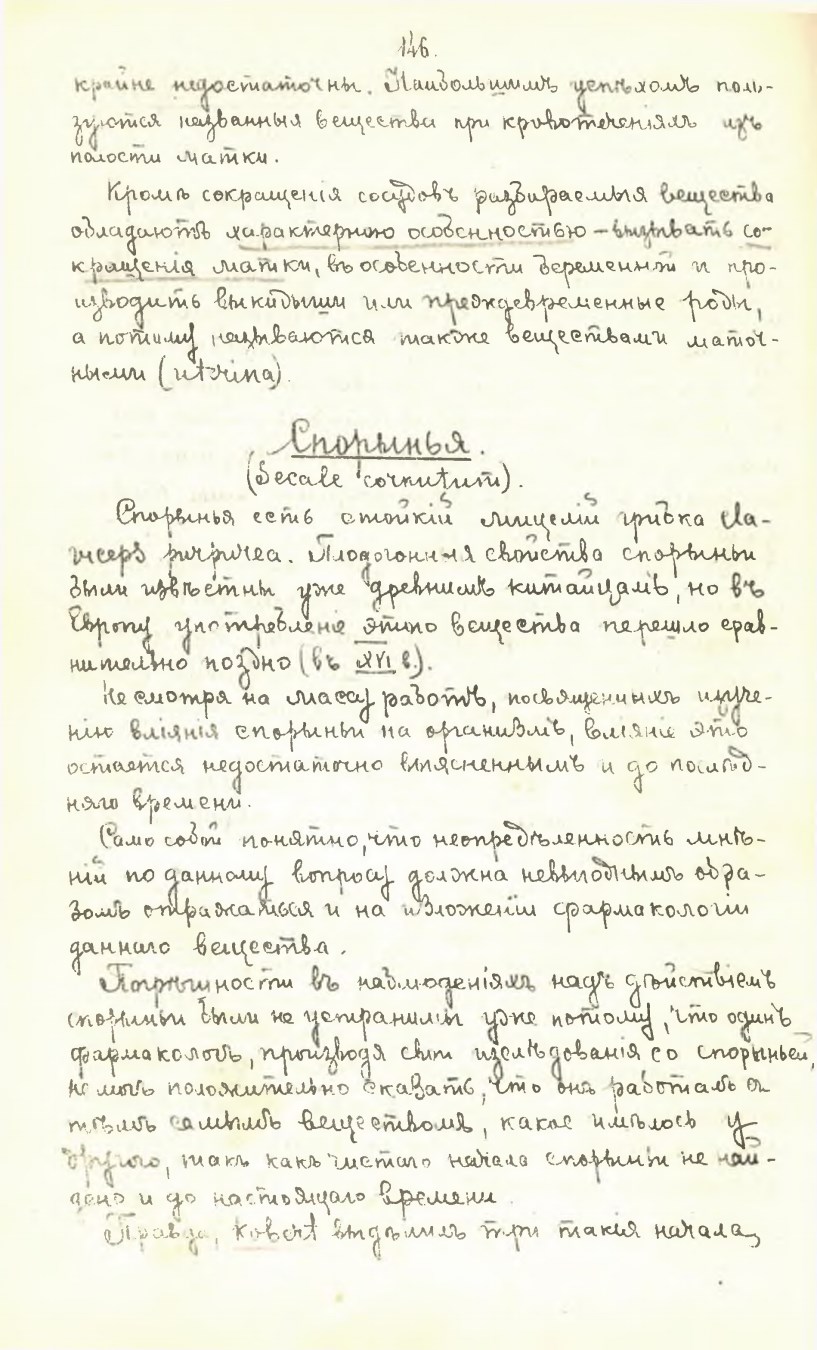 146.
крайне недостаточны. Наибольшимъ успѣхомъ поль-
зуются названныя вещества при кровотеченіяхъ изъ
полости матки.
Кромѣ сокращенія сосудовъ разбираемыя вещества
обладаютъ характерною особенностью – вызывать со-
кращенія матки, въ особенности беременной и про-
изводить выкидыши или преждевременные роды,
а потому называются также веществами маточ-
ными (uterina).
Спорынья.
(Secale cornutum).
Спорынья есть стойкій мицелій грибка Cla-
viceps purpurea. Плодогонныя свойства спорыньи
были извѣстны уже древнимъ китайцамъ, но въ
Европу употребленіе этого вещества перешло срав-
нительно поздно (въ XVI в.).
Не смотря на массу работъ, посвященныхъ изуче-
нію вліянія спорыньи на организмъ, вліяніе это
остается недостаточно выясненнымъ и до послѣд-
няго времени.
Само собой понятно, что неопредѣленность мнѣ-
ній по данному вопросу должна невыгоднымъ обра-
зомъ отражаться и на изложеніи фармакологіи
даннаго вещества.
Погрѣшности въ наблюденіяхъ надъ дѣйствіемъ
спорыньи были не устранимы уже потому, что одинъ
фармакологъ, производя свои изслѣдованія со спорыньей,
не могъ положительно сказать, что онъ работалъ съ
тѣмъ самымъ веществомъ, какое имѣлось у
другого, такъ какъ чистаго начала спорыньи не най-
дено и до настоящаго времени.
Правда, Kobert выдѣлилъ три такія начала,